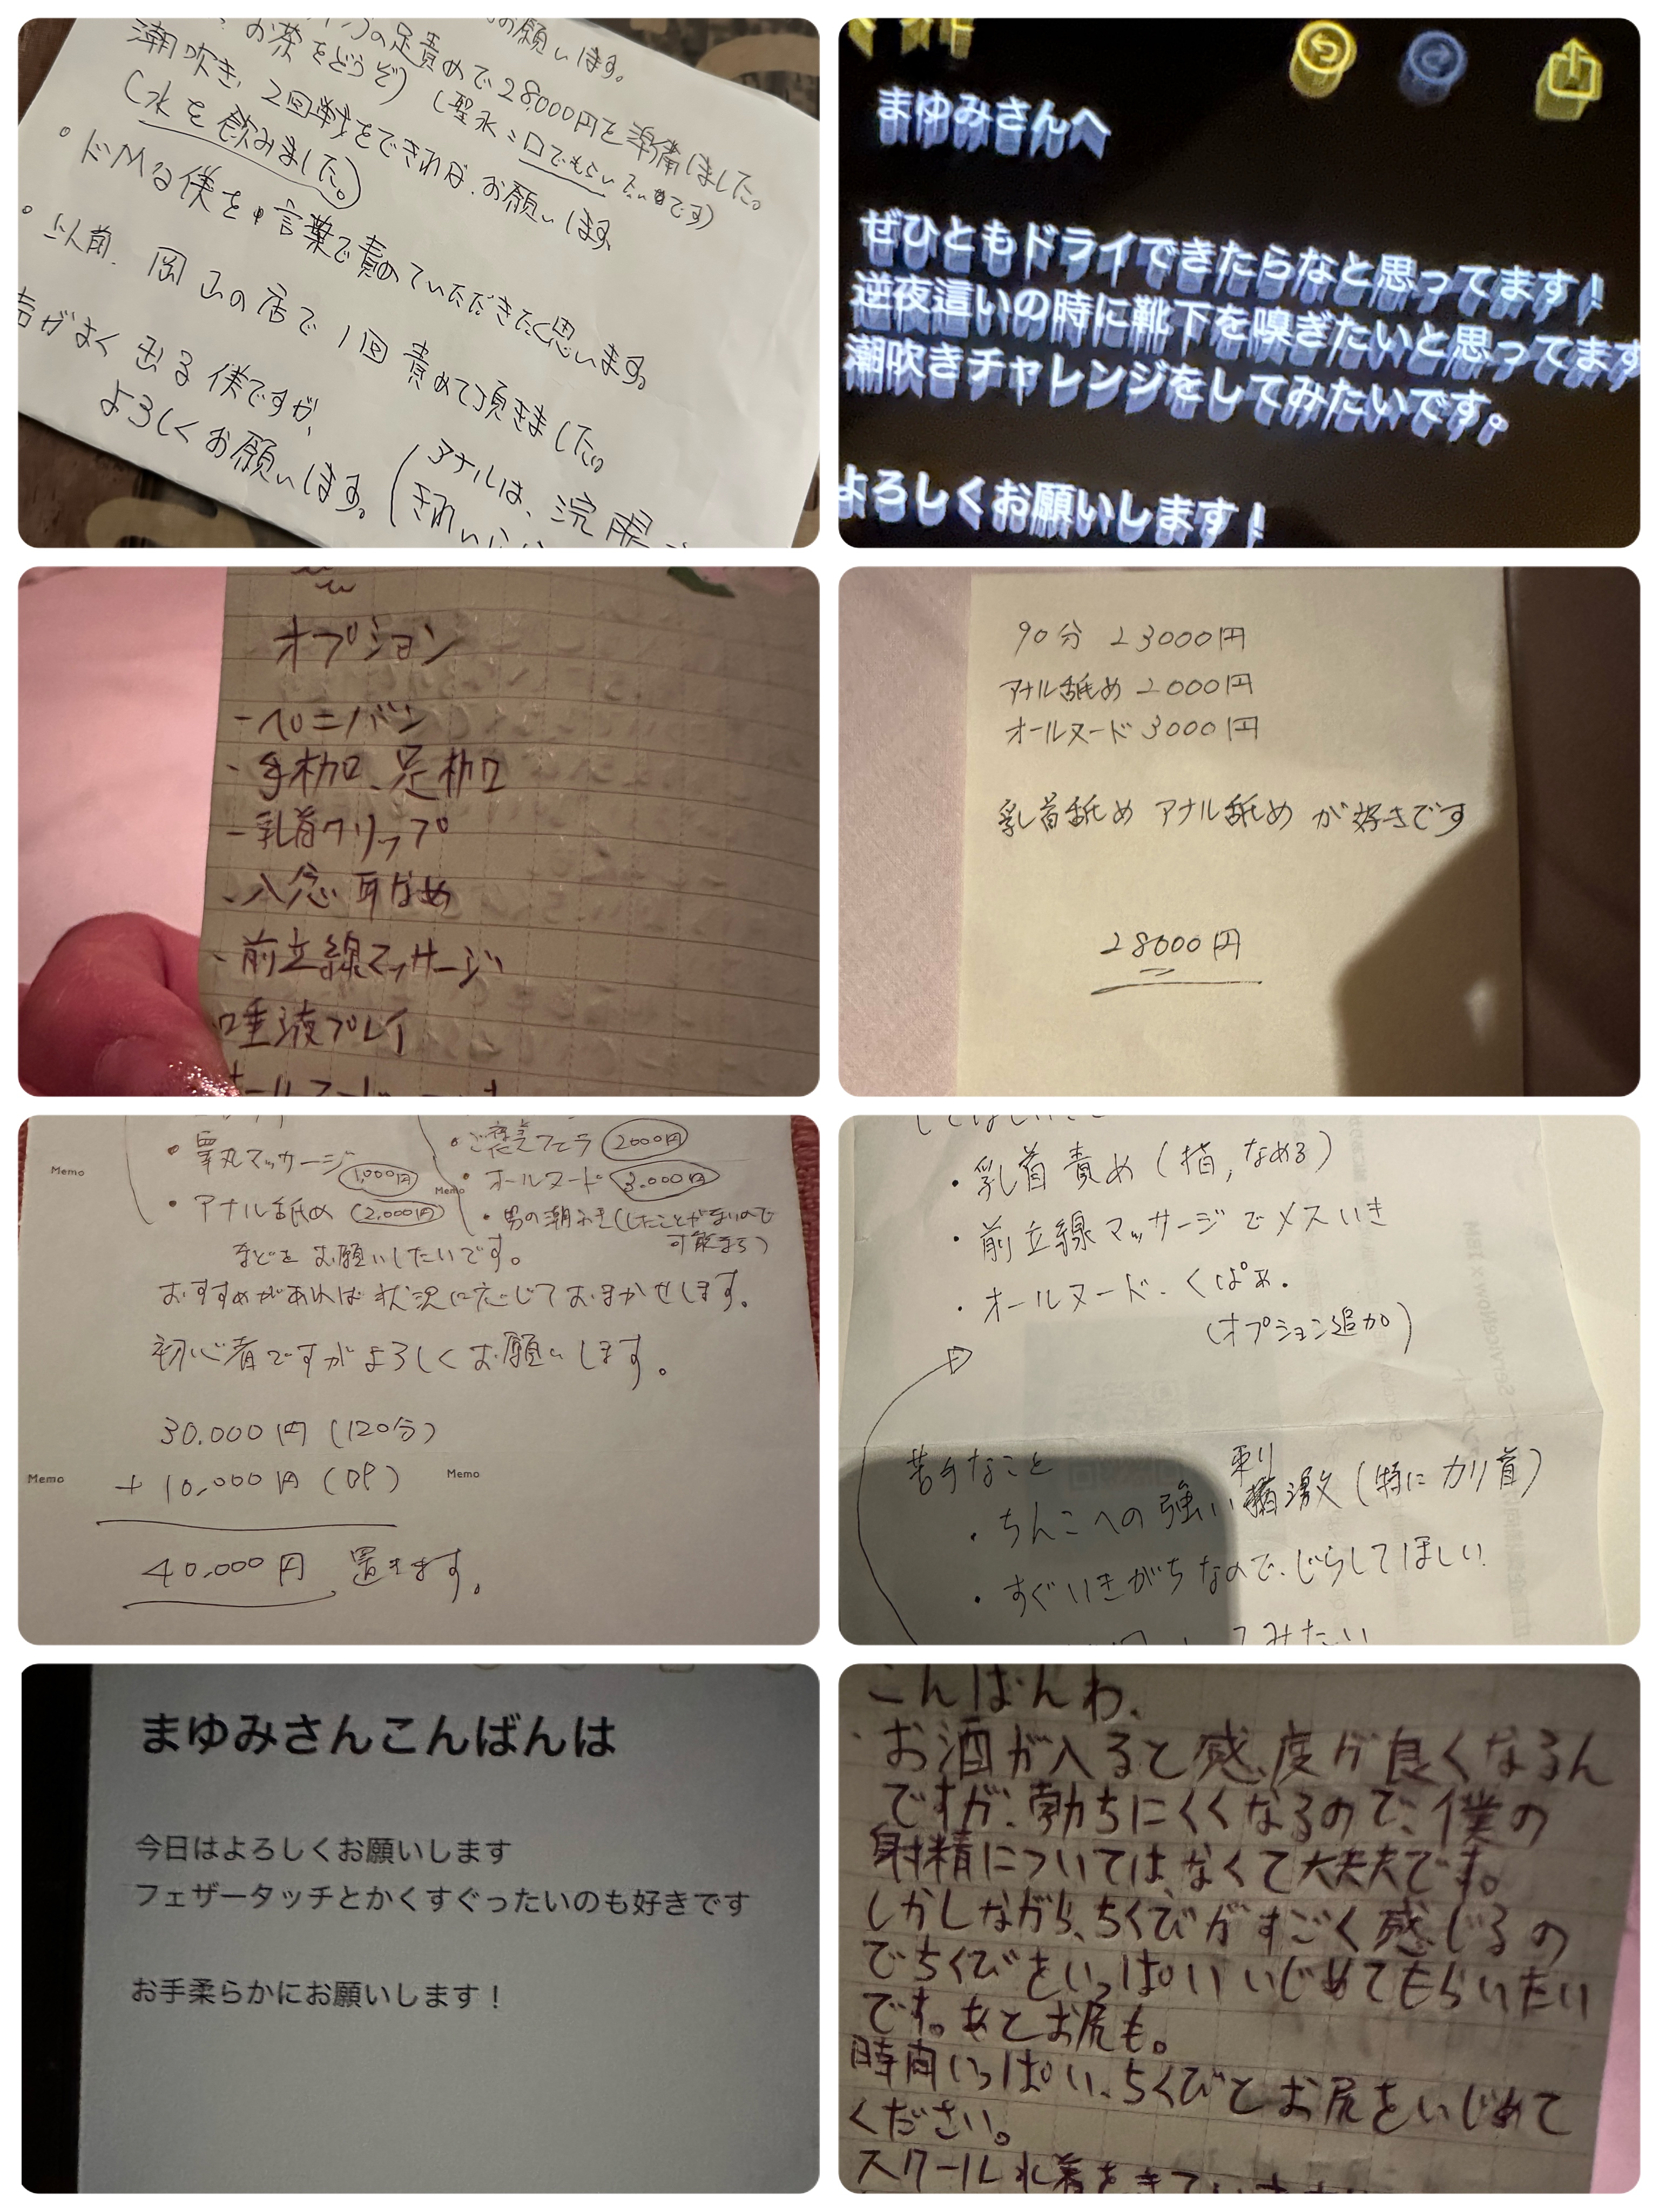 お願いします。
の足責めで28,000円を準備しました。
お茶をどうぞ) (聖水:口でもらいたいです)
潮吹き、2回戦をできれば、お願いします
(水を飲みました。)
・ドMな僕を言葉で責めていただきたく思います。
・以前、岡山の店で1回責めて頂きました。
声がよく出る僕ですが、
よろしくお願いします。
(アナルは、浣腸
きれい
まゆみさんへ
ぜひともドライできたらなと思ってます!
逆夜這いの時に靴下を嗅ぎたいと思ってます
潮吹きチャレンジをしてみたいです。
よろしくお願いします!
オプション
-ペニバン
・手枷、足枷
-乳首クリップ
・入念耳なめ
・前立線マッサージ
唾液プレイ
オールヌード
90分 23000円
アナル舐め 2000円
オールヌード 3000円
乳首舐め アナル舐め が好きです
28000円
・睾丸マッサージ 1,000円
・アナル舐め (2,000円)
・ご褒美フェラ 2000円
・オールヌード 3.000円
・男の潮ふき(したことがないので
可能なら)
などをお願いしたいです。
おすすめがあれば状況に応じておまかせします。
初心者ですがよろしくお願いします。
30.000円(120分)
+10,000円(OP)
40.000円 置きます。
Memo
Memo
Memo
Memo
してほしいこと
・乳首責め(指,なめる)
・前立線マッサージでメスいき
・オールヌード、くぱぁ.
(オプション追加)
苦手なこと
・ちんこへの強い刺激(特にカリ首)
・すぐいきがちなので、じらしてほしい
してみたい
まゆみさんこんばんは
今日はよろしくお願いします
フェザータッチとかくすぐったいのも好きです
お手柔らかにお願いします!
こんばんわ.
・お酒が入ると感度が良くなるん
ですが、勃ちにくくなるので、僕の
射精については、なくて大丈夫です。
しかしながら、ちくびがすごく感じるの
でちくびをいっぱいいじめてもらいたい
です。あとお尻も。
時間いっぱい、ちくびとお尻をいじめて
ください。
スクール水着をきて